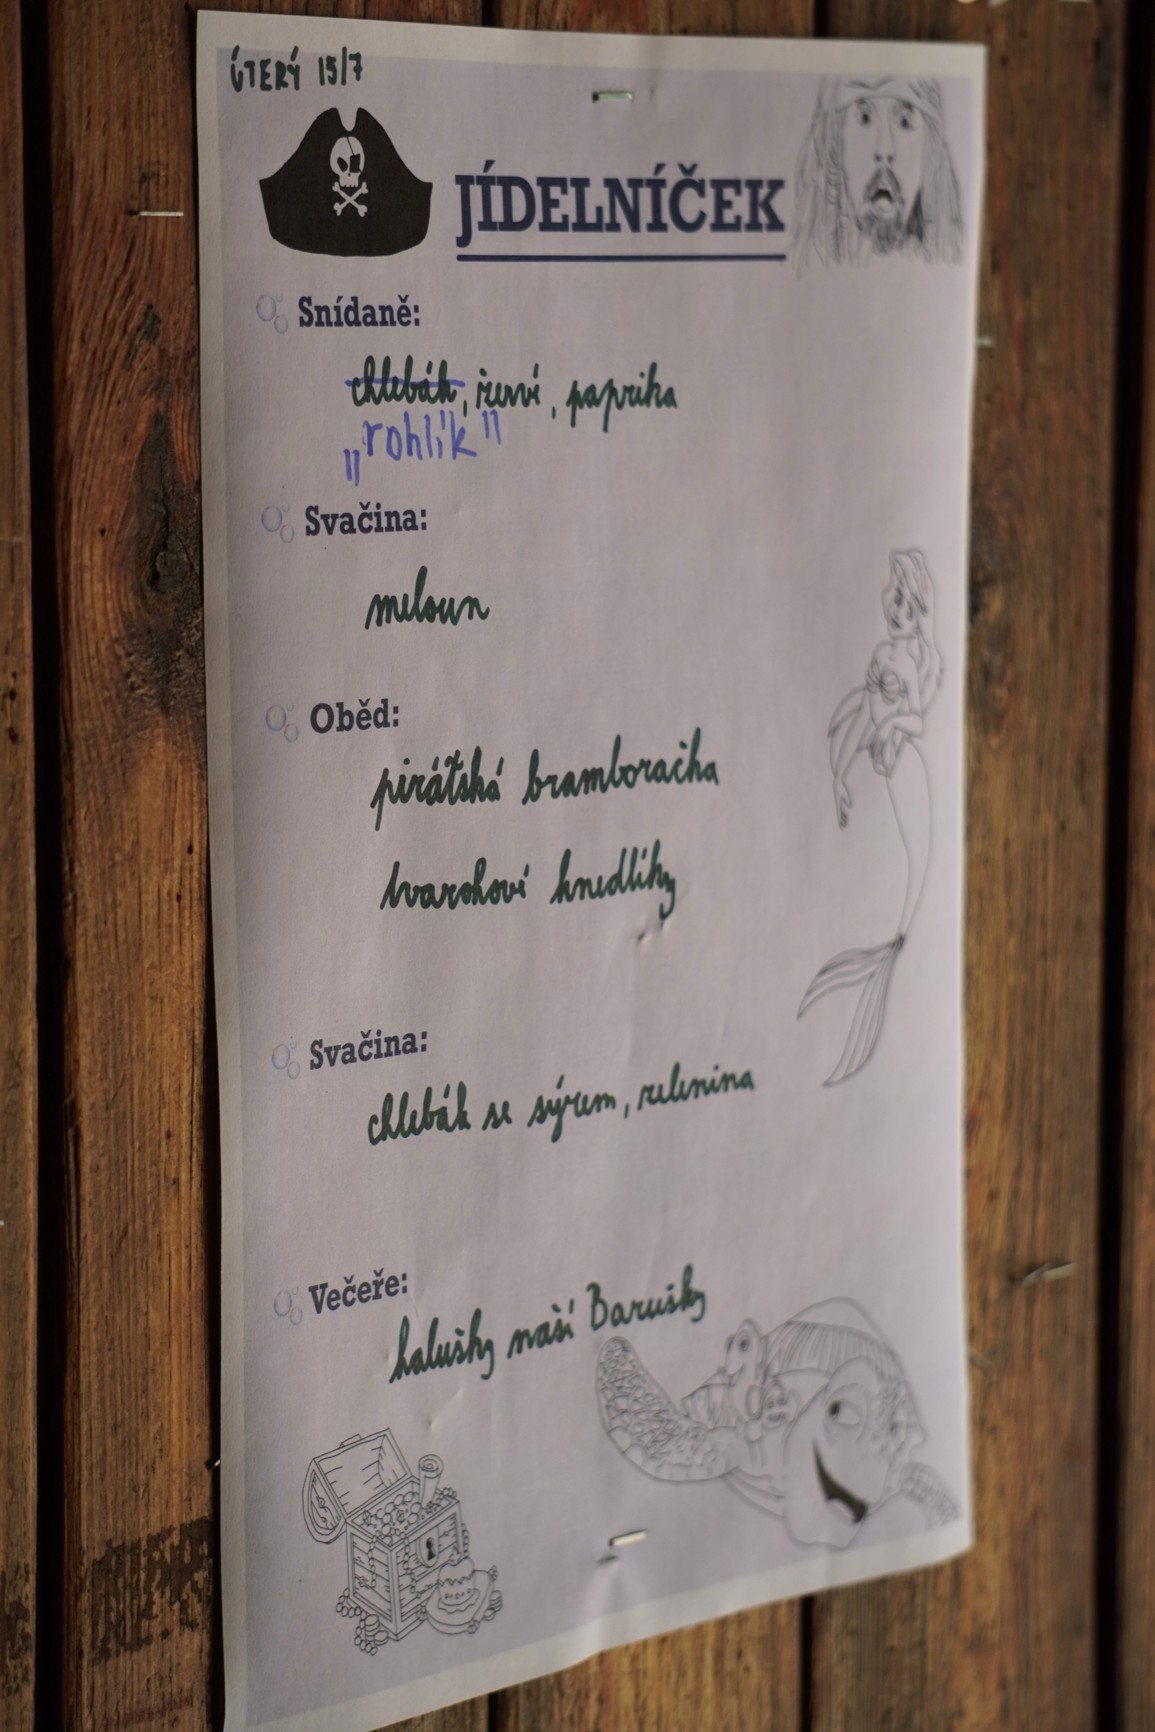 ÚTERÝ 15/7
JÍDELNÍČEK
Snídaně:
chlebák, žervé, paprika
„rohlík"
Svačina:
meloun
Oběd:
pirátská bramboračka
tvarohové knedlíky
Svačina:
chlebák se sýrem, zelenina
Večeře:
halušky naší Barušky